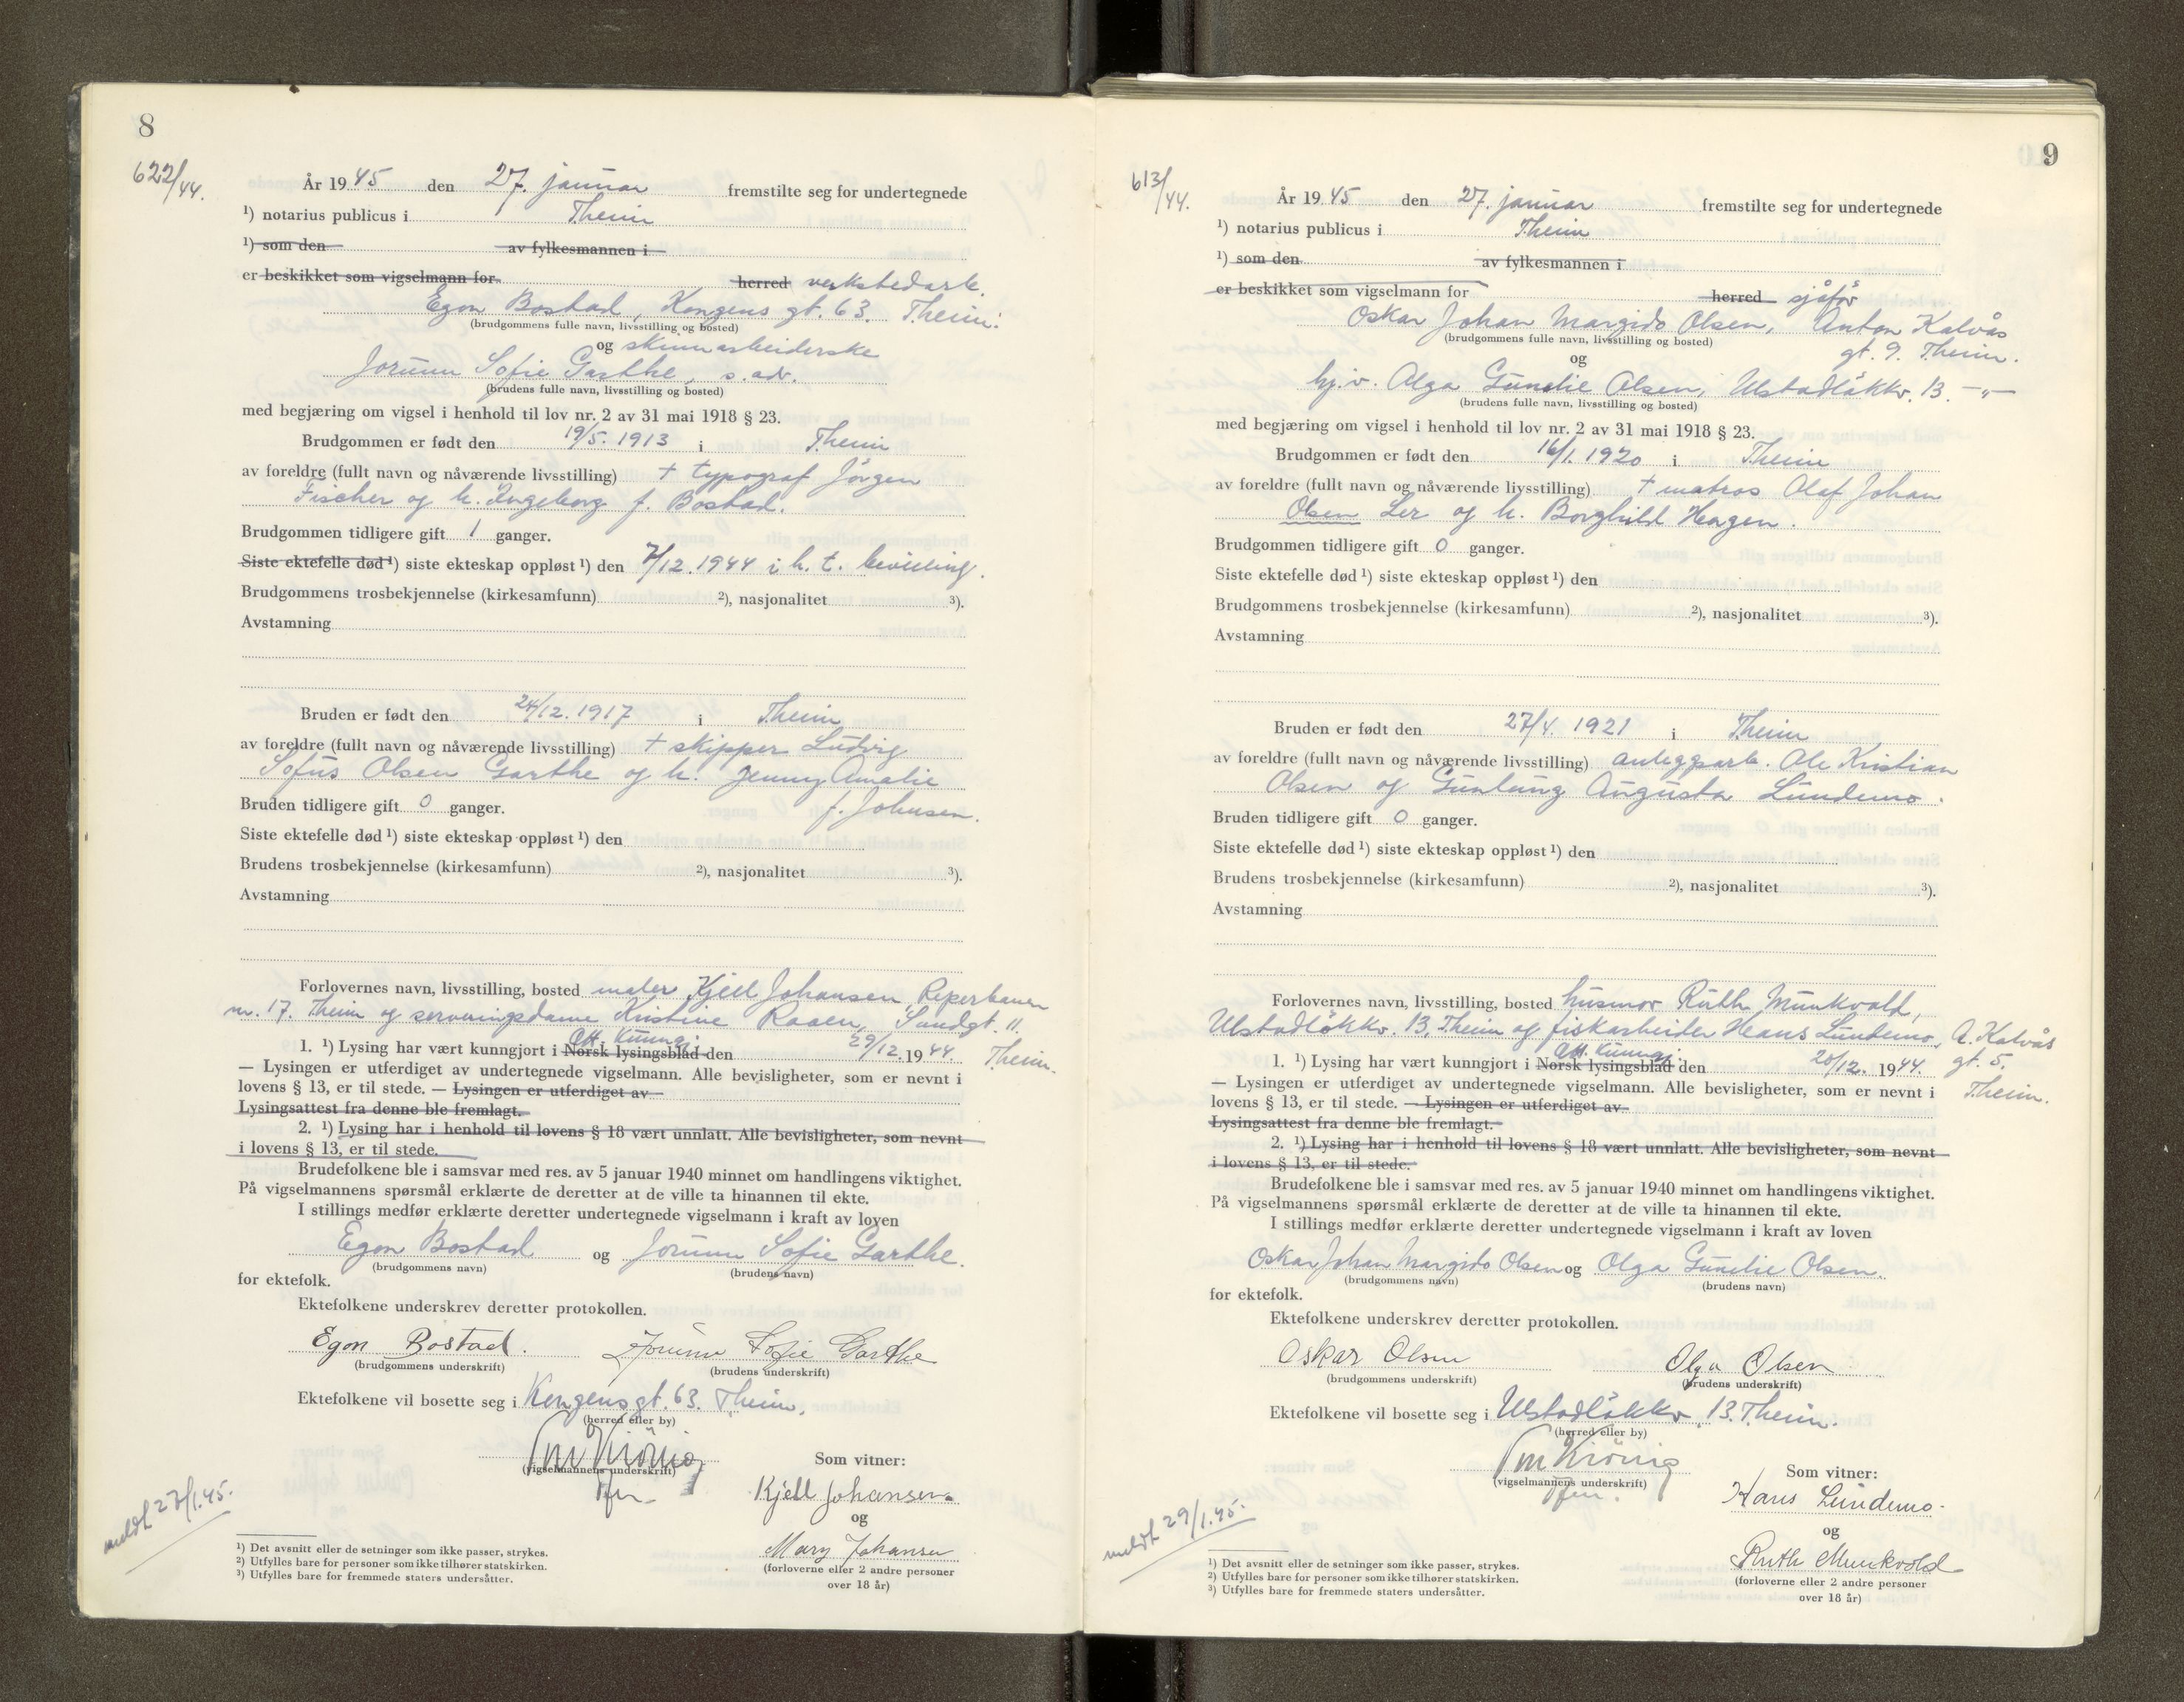 8
622/44.
År 1945 den 27. januar fremstilte seg for undertegnede
¹) notarius publicus i Theim
¹) som den av fylkesmannen i
er beskikket som vigselmann for herred verkstedarb.
Egon Bostad, Kongens gt. 63. Theim.
(brudgommens fulle navn, livsstilling og bosted)
og skinnarbeiderske
Jorunn Sofie Garthe, s. adr.
(brudens fulle navn, livsstilling og bosted)
med begjæring om vigsel i henhold til lov nr. 2 av 31 mai 1918 § 23.
Brudgommen er født den 19/5. 1913 i Theim
av foreldre (fullt navn og nåværende livsstilling) + typograf Jörgen
Fischer og h. Ingeborg f. Bostad.
Brudgommen tidligere gift 1 ganger.
Siste ektefelle død ¹) siste ekteskap oppløst ¹) den 7/12. 1944 i h. t. bevilling.
Brudgommens trosbekjennelse (kirkesamfunn) ²), nasjonalitet ³).
Avstamning
Bruden er født den 24/12. 1917 i Theim
av foreldre (fullt navn og nåværende livsstilling) + skipper Ludvig
Sofus Olsen Garthe og h. Jenny Amalie
f. Johnsen.
Bruden tidligere gift 0 ganger.
Siste ektefelle død ¹) siste ekteskap oppløst ¹) den
Brudens trosbekjennelse (kirkesamfunn) ²), nasjonalitet ³).
Avstamning
Forlovernes navn, livsstilling, bosted maler Kjell Johansen, Reperbanen
nr. 17. Theim og serveringsdame Kristine Raaen, Sandgt. 11.
Theim.
Off. kunngj.
1. ¹) Lysing har vært kunngjort i Norsk lysingsblad den 29/12. 1944.
— Lysingen er utferdiget av undertegnede vigselmann. Alle bevisligheter, som er nevnt i
lovens § 13, er til stede. — Lysingen er utferdiget av
Lysingsattest fra denne ble fremlagt.
2. ¹) Lysing har i henhold til lovens § 18 vært unnlatt. Alle bevisligheter, som nevnt
i lovens § 13, er til stede.
Brudefolkene ble i samsvar med res. av 5 januar 1940 minnet om handlingens viktighet.
På vigselmannens spørsmål erklærte de deretter at de ville ta hinannen til ekte.
I stillings medfør erklærte deretter undertegnede vigselmann i kraft av loven
Egon Bostad og Jorunn Sofie Garthe.
(brudgommens navn) (brudens navn)
for ektefolk.
Ektefolkene underskrev deretter protokollen.
Egon Bostad. Jorunn Sofie Garthe
(brudgommens underskrift) (brudens underskrift)
Ektefolkene vil bosette seg i Kongensgt. 63. Theim.
(herred eller by)
(vigselmannens underskrift)
Som vitner:
Kjell Johansen
og
Mary Johansen
(forloverne eller 2 andre personer
over 18 år)
meldt 27/1.45.
¹) Det avsnitt eller de setninger som ikke passer, strykes.
²) Utfylles bare for personer som ikke tilhører statskirken.
³) Utfylles bare for fremmede staters undersåtter.
9
613/44.
År 1945 den 27. januar fremstilte seg for undertegnede
¹) notarius publicus i Theim
¹) som den av fylkesmannen i
er beskikket som vigselmann for herred sjåfør
Oskar Johan Margido Olsen, Anton Kalvås
gt. 9. Theim.
(brudgommens fulle navn, livsstilling og bosted)
og
hj.v. Olga Gunelie Olsen, Ulstadløkkv. 13. —„—
(brudens fulle navn, livsstilling og bosted)
med begjæring om vigsel i henhold til lov nr. 2 av 31 mai 1918 § 23.
Brudgommen er født den 16/1. 1920 i Theim
av foreldre (fullt navn og nåværende livsstilling) + matros Olaf Johan
Olsen Ler og h. Borghild Hagen.
Brudgommen tidligere gift 0 ganger.
Siste ektefelle død ¹) siste ekteskap oppløst ¹) den
Brudgommens trosbekjennelse (kirkesamfunn) ²), nasjonalitet ³).
Avstamning
Bruden er født den 27/4. 1921 i Theim
av foreldre (fullt navn og nåværende livsstilling) anleggsarb. Ole Kristian
Olsen og Gunlaug Augusta Lundemo.
Bruden tidligere gift 0 ganger.
Siste ektefelle død ¹) siste ekteskap oppløst ¹) den
Brudens trosbekjennelse (kirkesamfunn) ²), nasjonalitet ³).
Avstamning
Forlovernes navn, livsstilling, bosted husmor Ruth Munkvold,
Ulstadløkkv. 13, Theim og fiskarbeider Hans Lundemo, A. Kalvås
gt. 5.
Theim.
Off. kunngj.
1. ¹) Lysing har vært kunngjort i Norsk lysingsblad den 20/12. 1944.
— Lysingen er utferdiget av undertegnede vigselmann. Alle bevisligheter, som er nevnt i
lovens § 13, er til stede. — Lysingen er utferdiget av
Lysingsattest fra denne ble fremlagt.
2. ¹) Lysing har i henhold til lovens § 18 vært unnlatt. Alle bevisligheter, som nevnt
i lovens § 13, er til stede.
Brudefolkene ble i samsvar med res. av 5 januar 1940 minnet om handlingens viktighet.
På vigselmannens spørsmål erklærte de deretter at de ville ta hinannen til ekte.
I stillings medfør erklærte deretter undertegnede vigselmann i kraft av loven
Oskar Johan Margido Olsen og Olga Gunelie Olsen.
(brudgommens navn) (brudens navn)
for ektefolk.
Ektefolkene underskrev deretter protokollen.
Oskar Olsen Olga Olsen
(brudgommens underskrift) (brudens underskrift)
Ektefolkene vil bosette seg i Ulstadløkkv. 13. Theim.
(herred eller by)
(vigselmannens underskrift)
Som vitner:
Hans Lundemo.
og
Ruth Munkvold
(forloverne eller 2 andre personer
over 18 år)
meldt 29/1.45.
¹) Det avsnitt eller de setninger som ikke passer, strykes.
²) Utfylles bare for personer som ikke tilhører statskirken.
³) Utfylles bare for fremmede staters undersåtter.